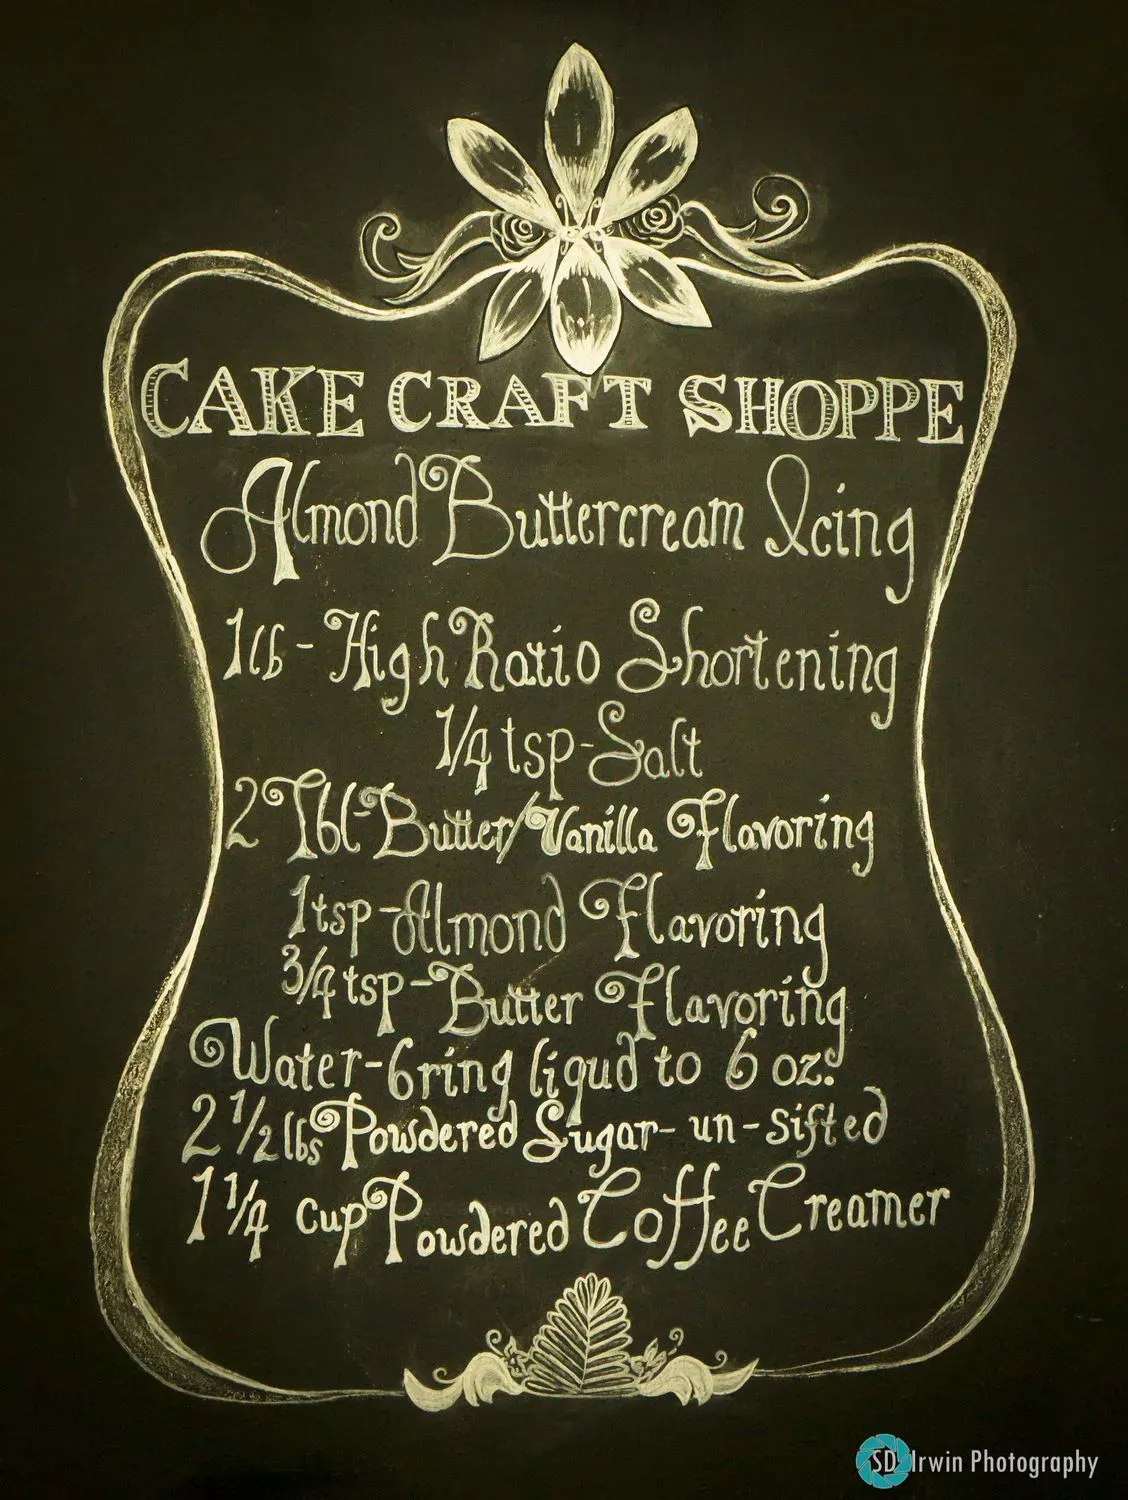 CAKE CRAFT SHOPPE
Almond Buttercream Icing
1lb - High Ratio Shortening
1/4 tsp - Salt
2 Tbl - Butter/Vanilla Flavoring
1tsp - Almond Flavoring
3/4 tsp - Butter Flavoring
Water - bring liqud to 6 oz.
2 1/2 lbs Powdered Sugar - un-sifted
1 1/4 cup Powdered Coffee Creamer
SD Irwin Photography